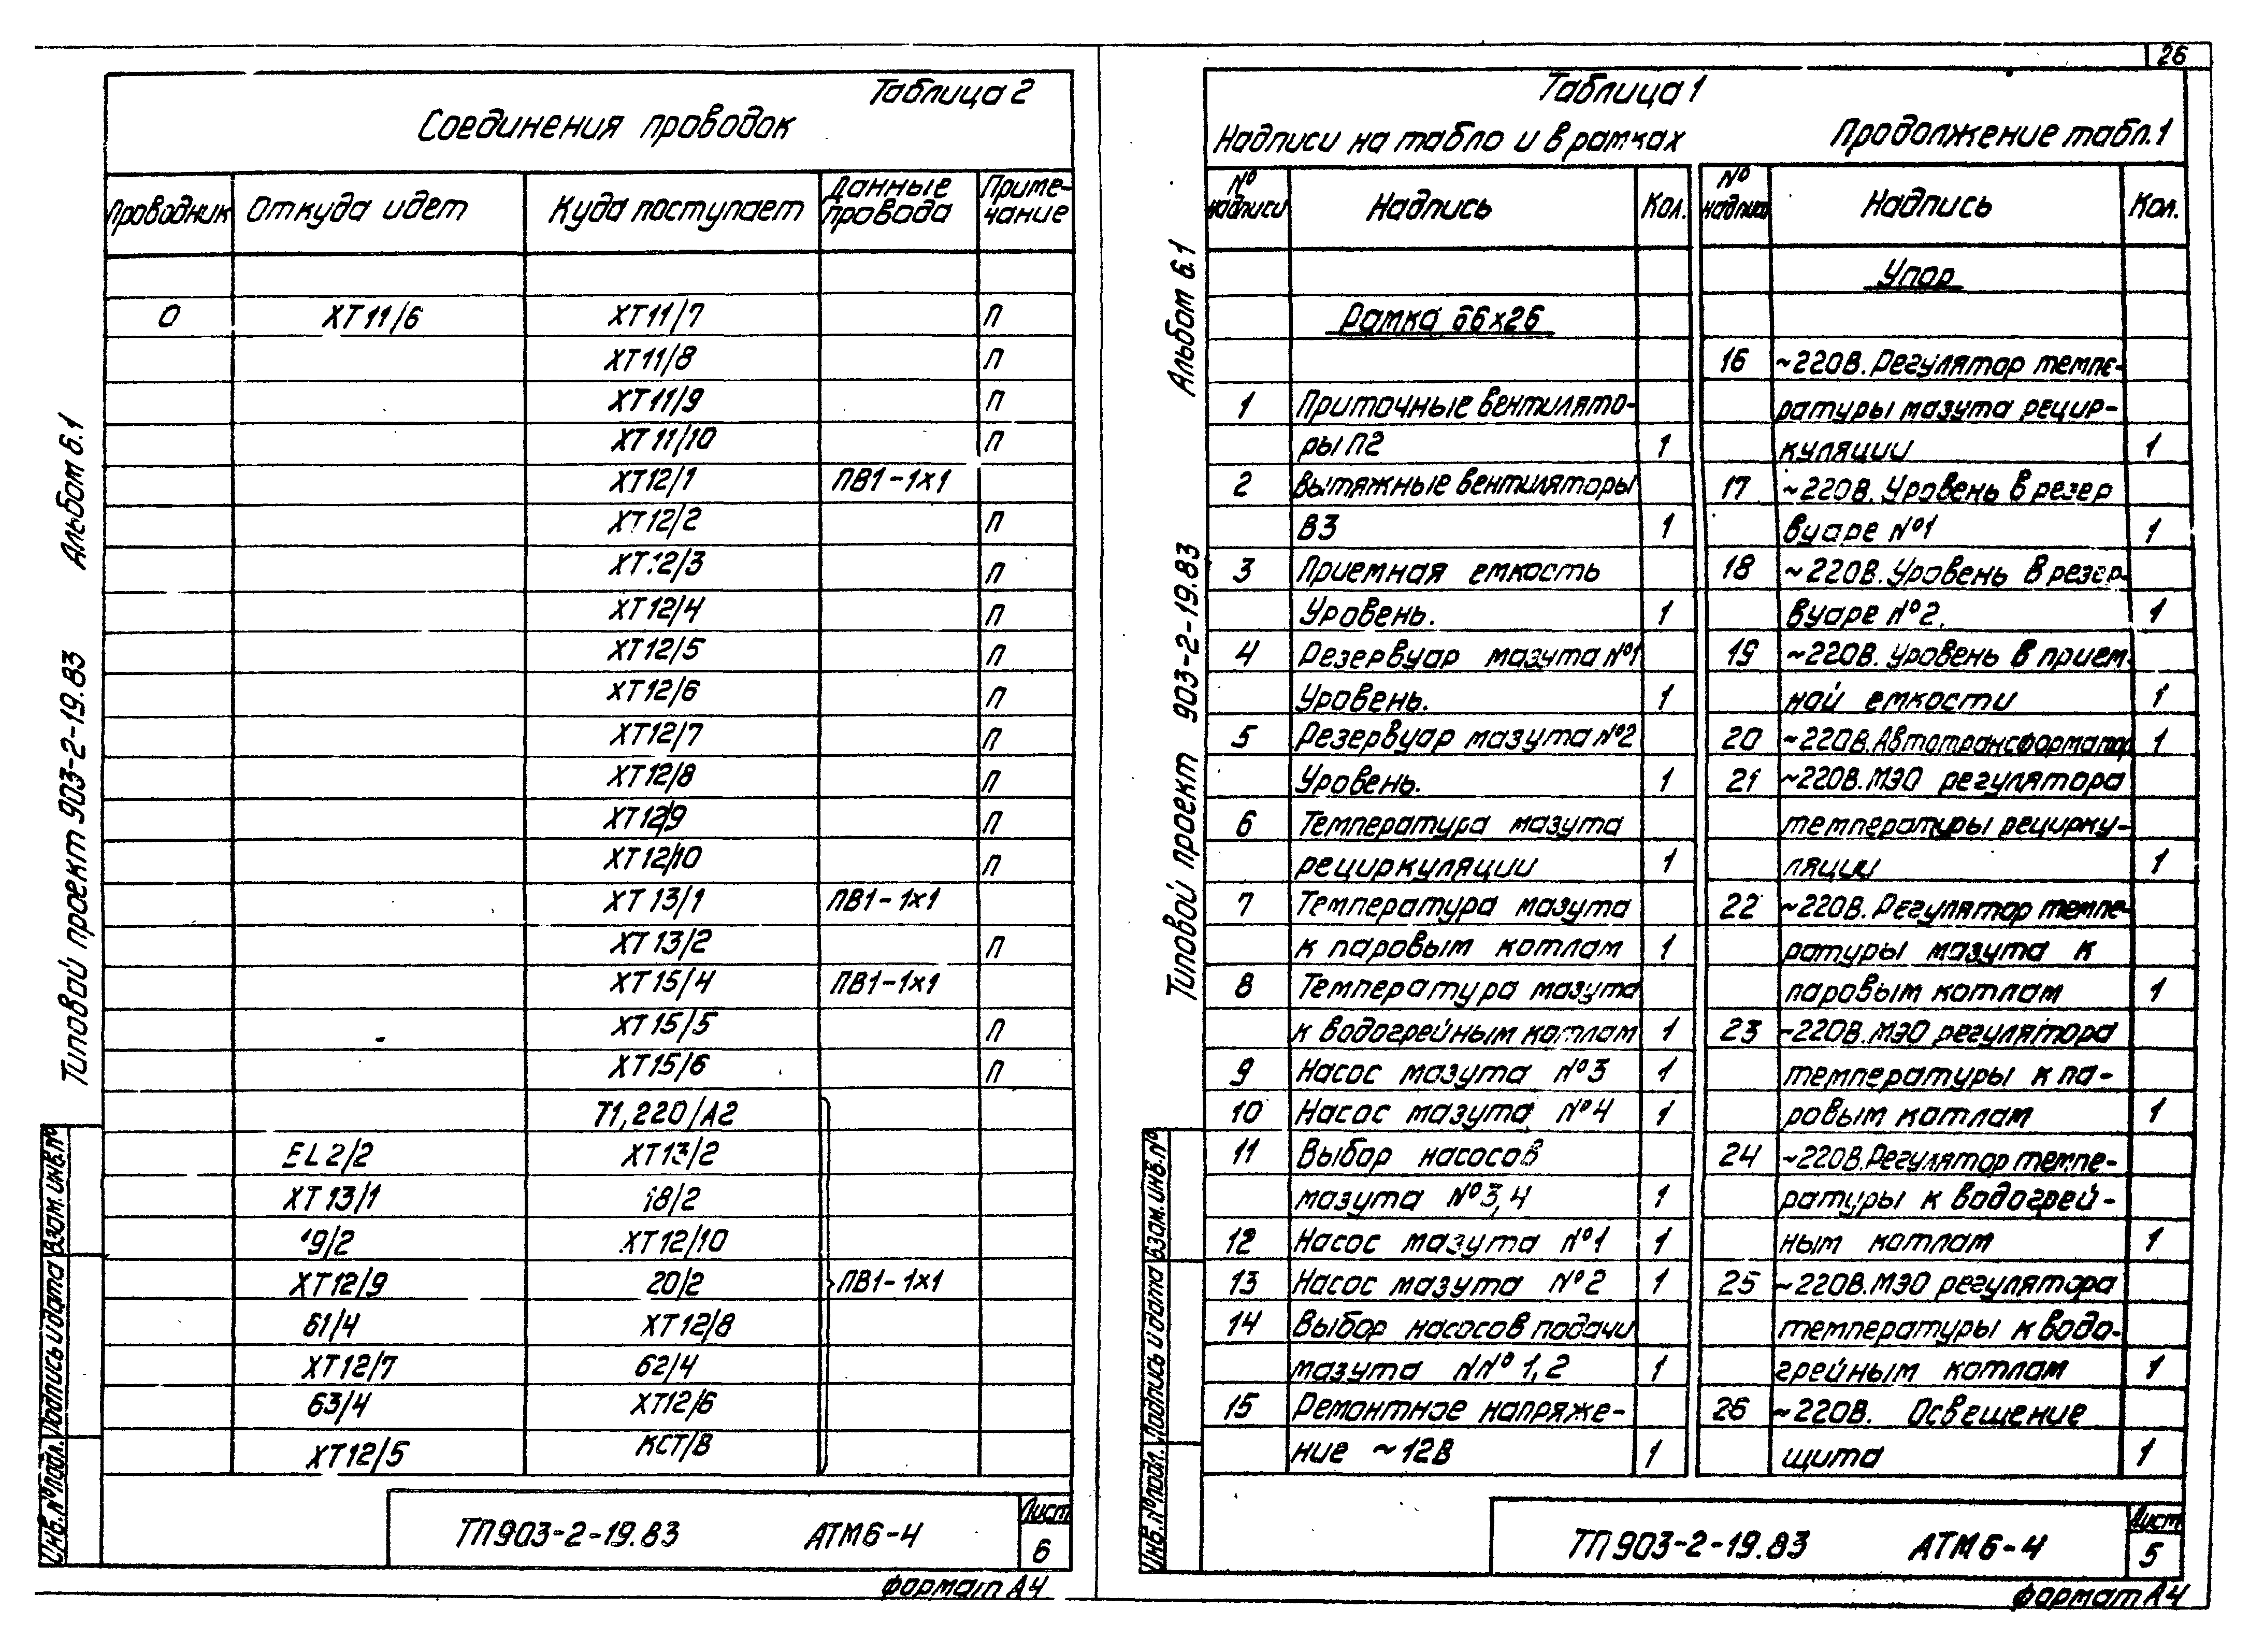 26
Таблица 2
Соединения проводок
Проводник Откуда идет Куда поступает Данные провода Примечание
0 ХТ11/6 ХТ11/7 П
ХТ11/8 П
ХТ11/9 П
ХТ11/10 П
ХТ12/1 ПВ1-1х1
ХТ12/2 П
ХТ12/3 П
ХТ12/4 П
ХТ12/5 П
ХТ12/6 П
ХТ12/7 П
ХТ12/8 П
ХТ12/9 П
ХТ12/10 П
ХТ13/1 ПВ1-1х1
ХТ13/2 П
ХТ15/4 ПВ1-1х1
ХТ15/5 П
ХТ15/6 П
Т1,220/А2
EL2/2 ХТ13/2
ХТ13/1 18/2
19/2 ХТ12/10
ХТ12/9 20/2 ПВ1-1х1
61/4 ХТ12/8
ХТ12/7 62/4
63/4 ХТ12/6
ХТ12/5 КСТ/В
ТП903-2-19.83 АТМ6-4
Лист
6
формат А4
Типовой проект 903-2-19.83 Альбом 6.1
Инв.№подл. Подпись и дата Взам.инв.№
Таблица 1
Надписи на табло и в рамках
№ надписи Надпись Кол.
Рамка 66х26
1 Приточные вентилято-
ры П2 1
2 Вытяжные вентиляторы
В3 1
3 Приемная емкость
Уровень. 1
4 Резервуар мазута №1
Уровень. 1
5 Резервуар мазута №2
Уровень. 1
6 Температура мазута
рециркуляции 1
7 Температура мазута
к паровым котлам 1
8 Температура мазута
к водогрейным котлам 1
9 Насос мазута №3 1
10 Насос мазута №4 1
11 Выбор насосов
мазута №3,4 1
12 Насос мазута №1 1
13 Насос мазута №2 1
14 Выбор насосов подачи
мазута NN° 1,2 1
15 Ремонтное напряже-
ние ~12В 1
Продолжение табл.1
№ надписи Надпись Кол.
Упор
16 ~220В.Регулятор темпе-
ратуры мазута рецир-
куляции 1
17 ~220В.Уровень в резер
вуаре №1 1
18 ~220В.Уровень в резер-
вуаре №2. 1
19 ~220В.Уровень в прием-
ной емкости 1
20 ~220В.Автотрансформатор 1
21 ~220В.МЭО регулятора
температуры рецирку-
ляции 1
22 ~220В.Регулятор темпе-
ратуры мазута к
паровым котлам 1
23 ~220В.МЭО регулятора
температуры к па-
ровым котлам 1
24 ~220В.Регулятор темпе-
ратуры к водогрей-
ным котлам 1
25 ~220В.МЭО регулятора
температуры к водо-
грейным котлам 1
26 ~220В. Освещение
щита 1
ТП903-2-19.83 АТМ6-4
Лист
5
формат А4
Типовой проект 903-2-19.83 Альбом 6.1
Инв.№подл. Подпись и дата Взам.инв.№